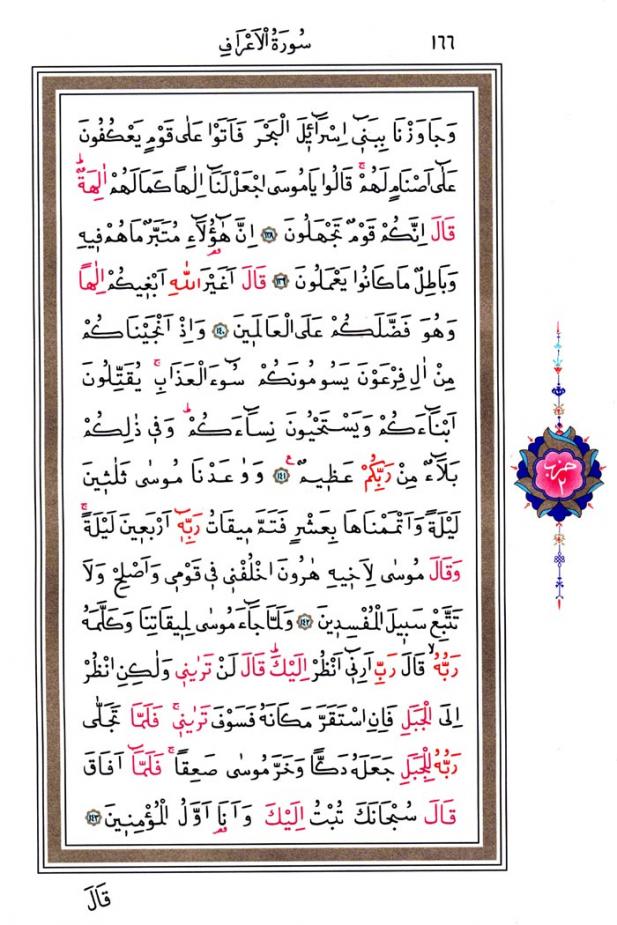 ١٦٦ سُورَةُ الْاَعْرَافِ
وَجَاوَزْنَا بِبَنٖٓي اِسْرَٓائٖلَ الْبَحْرَ فَاَتَوْا عَلٰى قَوْمٍ يَعْكُفُونَ
عَلٰٓى اَصْنَامٍ لَهُمْۚ قَالُوا يَامُوسَى اجْعَلْ لَنَٓا اِلٰهًا كَمَالَهُمْ اٰلِهَةٌۜ
قَالَ اِنَّكُمْ قَوْمٌ تَجْهَلُونَ ﴿١٣٨﴾ اِنَّ هٰٓؤُ۬لَٓاءِ مُتَبَّرٌ مَاهُمْ فٖيهِ
وَبَاطِلٌ مَا كَانُوا يَعْمَلُونَ ﴿١٣٩﴾ قَالَ اَغَيْرَ اللّٰهِ اَبْغٖيكُمْ اِلٰهًا
وَهُوَ فَضَّلَكُمْ عَلَى الْعَالَمٖينَ ﴿١٤٠﴾ وَاِذْ اَنْجَيْنَاكُمْ
مِنْ اٰلِ فِرْعَوْنَ يَسُومُونَكُمْ سُٓوءَ الْعَذَابِۚ يُقَتِّلُونَ
اَبْنَٓاءَكُمْ وَيَسْتَحْيُونَ نِسَٓاءَكُمْۜ وَفٖي ذٰلِكُمْ
بَلَٓاءٌ مِنْ رَبِّكُمْ عَظٖيمٌ ﴿١٤١﴾ وَوٰعَدْنَا مُوسٰى ثَلٰثٖينَ
لَيْلَةً وَاَتْمَمْنَاهَا بِعَشْرٍ فَتَمَّ مٖيقَاتُ رَبِّهٖٓ اَرْبَعٖينَ لَيْلَةًۚ
وَقَالَ مُوسٰى لِاَخٖيهِ هٰرُونَ اخْلُفْنٖي فٖي قَوْمٖي وَاَصْلِحْ وَلَا
تَتَّبِعْ سَبٖيلَ الْمُفْسِدٖينَ ﴿١٤٢﴾ وَلَمَّا جَٓاءَ مُوسٰى لِمٖيقَاتِنَا وَكَلَّمَهُ
رَبُّهُۙ قَالَ رَبِّ اَرِنٖٓي اَنْظُرْ اِلَيْكَۜ قَالَ لَنْ تَرٰينٖي وَلٰكِنِ انْظُرْ
اِلَى الْجَبَلِ فَاِنِ اسْتَقَرَّ مَكَانَهُ فَسَوْفَ تَرٰينٖيۚ فَلَمَّا تَجَلّٰى
رَبُّهُ لِلْجَبَلِ جَعَلَهُ دَكًّا وَخَرَّ مُوسٰى صَعِقًاۚ فَلَمَّٓا اَفَاقَ
قَالَ سُبْحَانَكَ تُبْتُ اِلَيْكَ وَاَنَا۬ اَوَّلُ الْمُؤْمِنٖينَ ﴿١٤٣﴾
حزب
٢
قَالَ